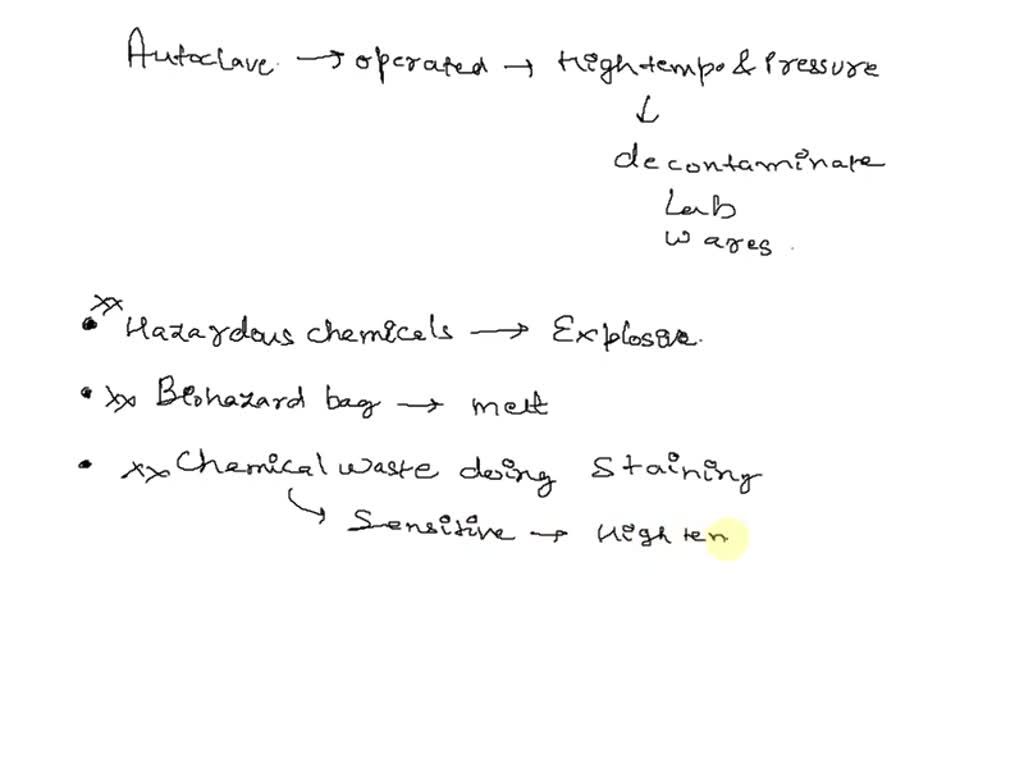 Autoclave → operated → High tempo & Pressure
↓
decontaminate
Lab
wares.
xx
• Hazardous chemicals → Explosive.
• xx Biohazard bag → melt
• xx Chemical waste doing Staining
↳ Sensitive → High ten